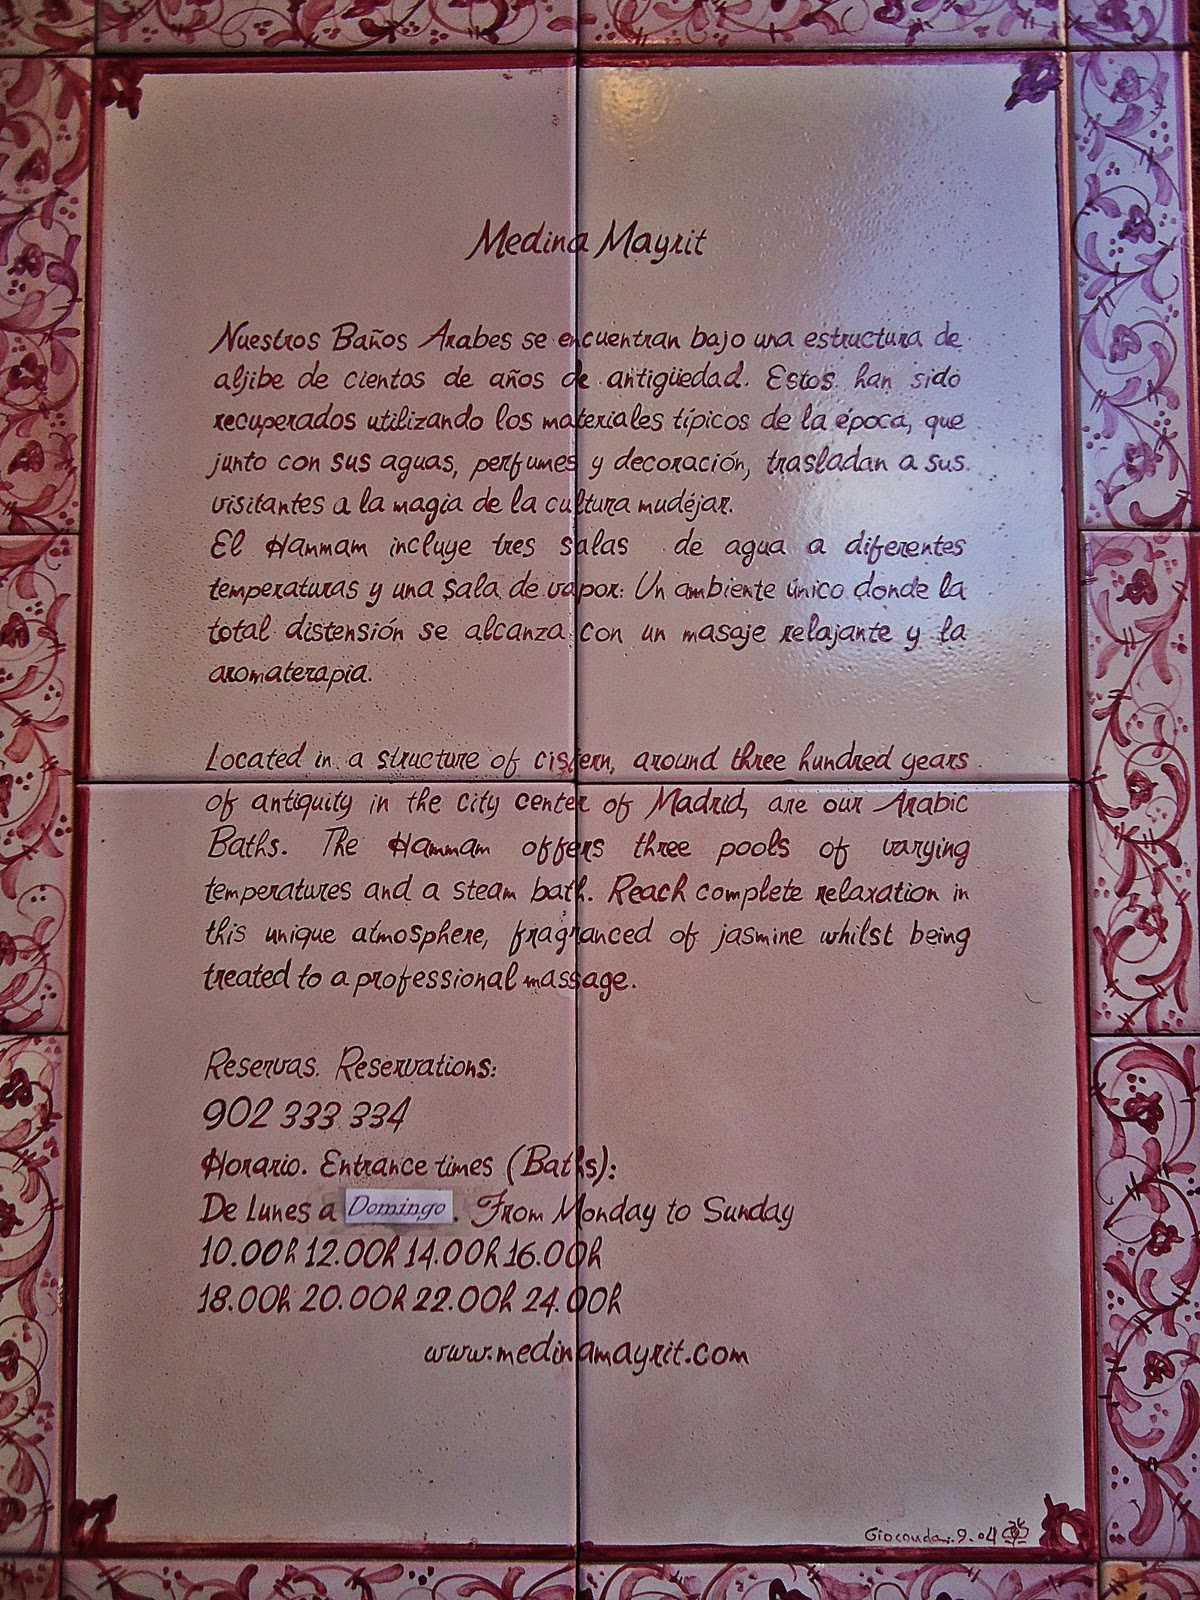 Medina Mayrit
Nuestros Baños Arabes se encuentran bajo una estructura de
aljibe de cientos de años de antigüedad. Estos han sido
recuperados utilizando los materiales típicos de la época, que
junto con sus aguas, perfumes y decoración, trasladan a sus
visitantes a la magia de la cultura mudéjar.
El Hammam incluye tres salas de agua a diferentes
temperaturas y una sala de vapor: Un ambiente único donde la
total distensión se alcanza con un masaje relajante y la
aromaterapia.
Located in a structure of cistern, around three hundred years
of antiquity in the city center of Madrid, are our Arabic
Baths. The Hammam offers three pools of varying
temperatures and a steam bath. Reach complete relaxation in
this unique atmosphere, fragranced of jasmine whilst being
treated to a professional massage.
Reservas. Reservations:
902 333 334
Horario. Entrance times (Baths):
De Lunes a Domingo. From Monday to Sunday
10.00h 12.00h 14.00h 16.00h
18.00h 20.00h 22.00h 24.00h
www.medinamayrit.com
Gioconda.9.04